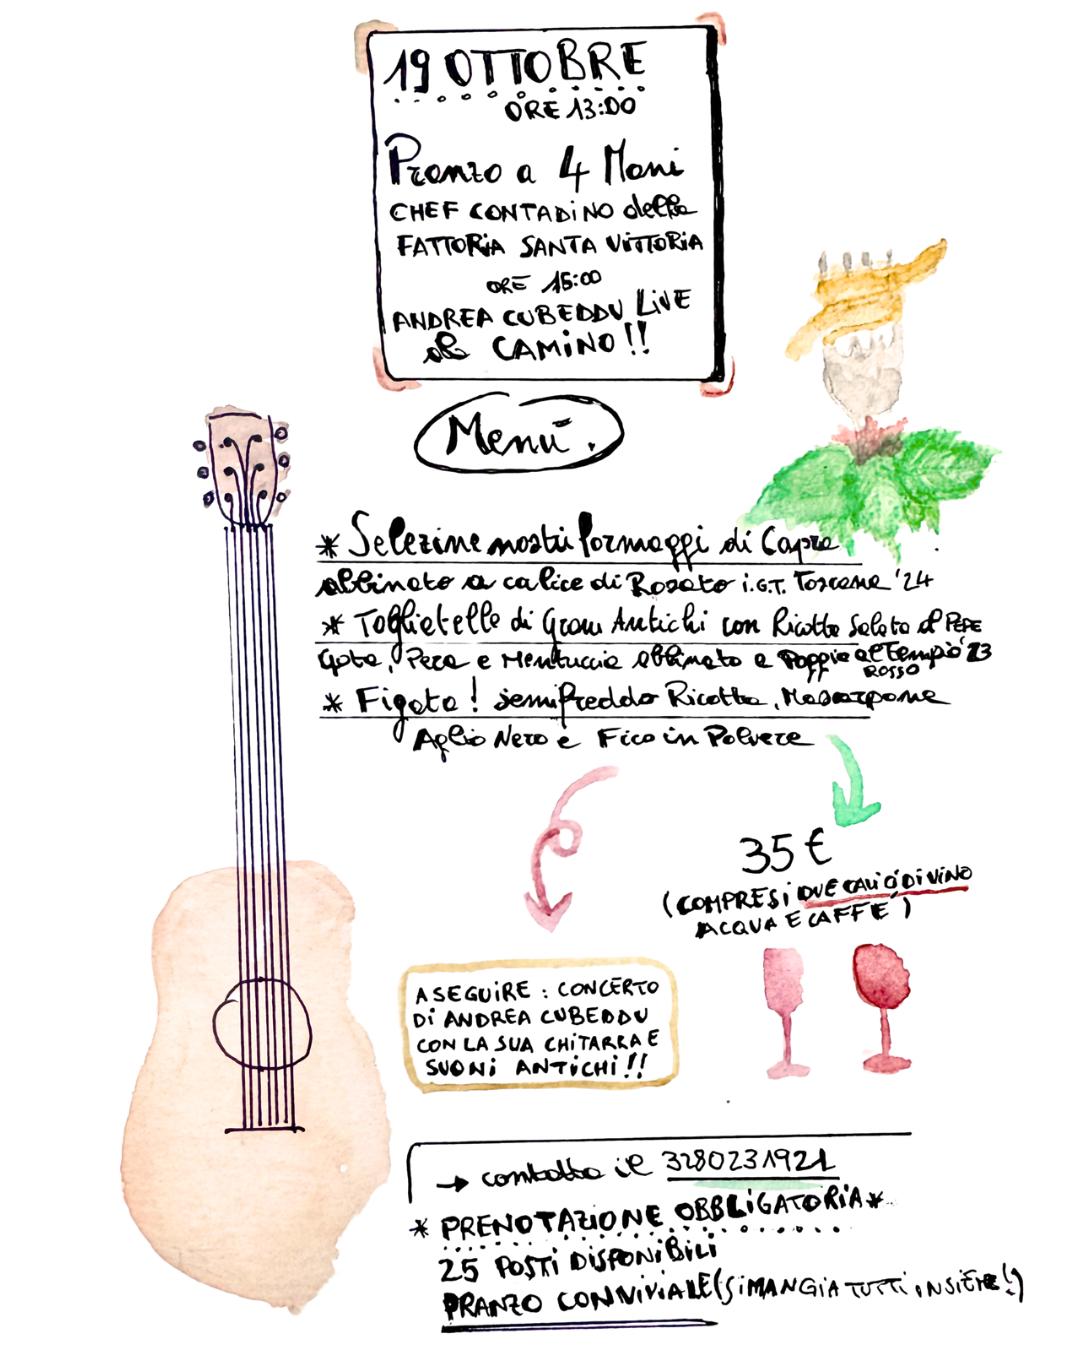 19 OTTOBRE
ORE 13:00
Pranzo a 4 Mani
CHEF CONTADINO della
FATTORIA SANTA VITTORIA
ORE 15:00
ANDREA CUBEDDU LIVE
al CAMINO!!
Menù.
* Selezine nostri formaggi di Capra
abbinato a calice di Rosato i.G.T. Toscana '24
* Tagliatelle di Grani Antichi con Ricotta Salata al PEPE
Gota, Pera e Mentuccia abbinato a Poggio al Tempio '23
ROSSO
* Figata! semifreddo Ricotta, Mascarpone
Aglio Nero e Fico in Polvere
35 €
(COMPRESI DUE CALICI DI VINO
ACQUA E CAFFE')
A SEGUIRE: CONCERTO
DI ANDREA CUBEDDU
CON LA SUA CHITARRA E
SUONI ANTICHI!!
→ contatta il 3280231921
* PRENOTAZIONE OBBLIGATORIA *
25 POSTI DISPONIBILI
PRANZO CONVIVIALE (SI MANGIA TUTTI INSIEME!)